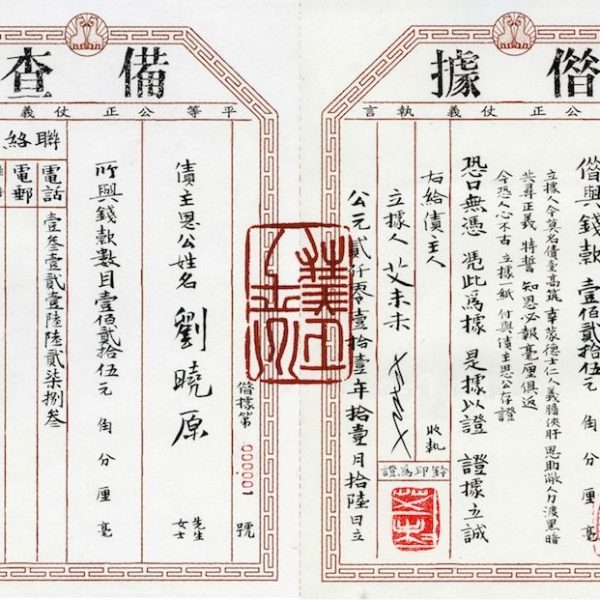 借據
公正仗義執言
借與錢款 壹佰貳拾伍元 角 分 厘 毫
立據人今莫名債臺高筑 幸蒙德士仁人義膽俠肝 恩助 人力渡黑暗
共尋正義 特誓 知恩必報 毫厘俱返
今恐人心不古 立據一紙 付與債主恩公存證
恐口無憑 憑此為據 是據以證 證據立誠
右給債主人 收執
立據人 艾未未
鈐印為證
公元貳仟零壹拾壹年拾壹月拾陸日立
備查
平等公正仗義
借據第 000001 號
債主恩公姓名 劉曉原 先生 女士
所與錢款數目壹佰貳拾伍元 角 分 厘 毫
聯絡
電話 壹叁壹貳壹陸陸貳柒捌叁
電郵